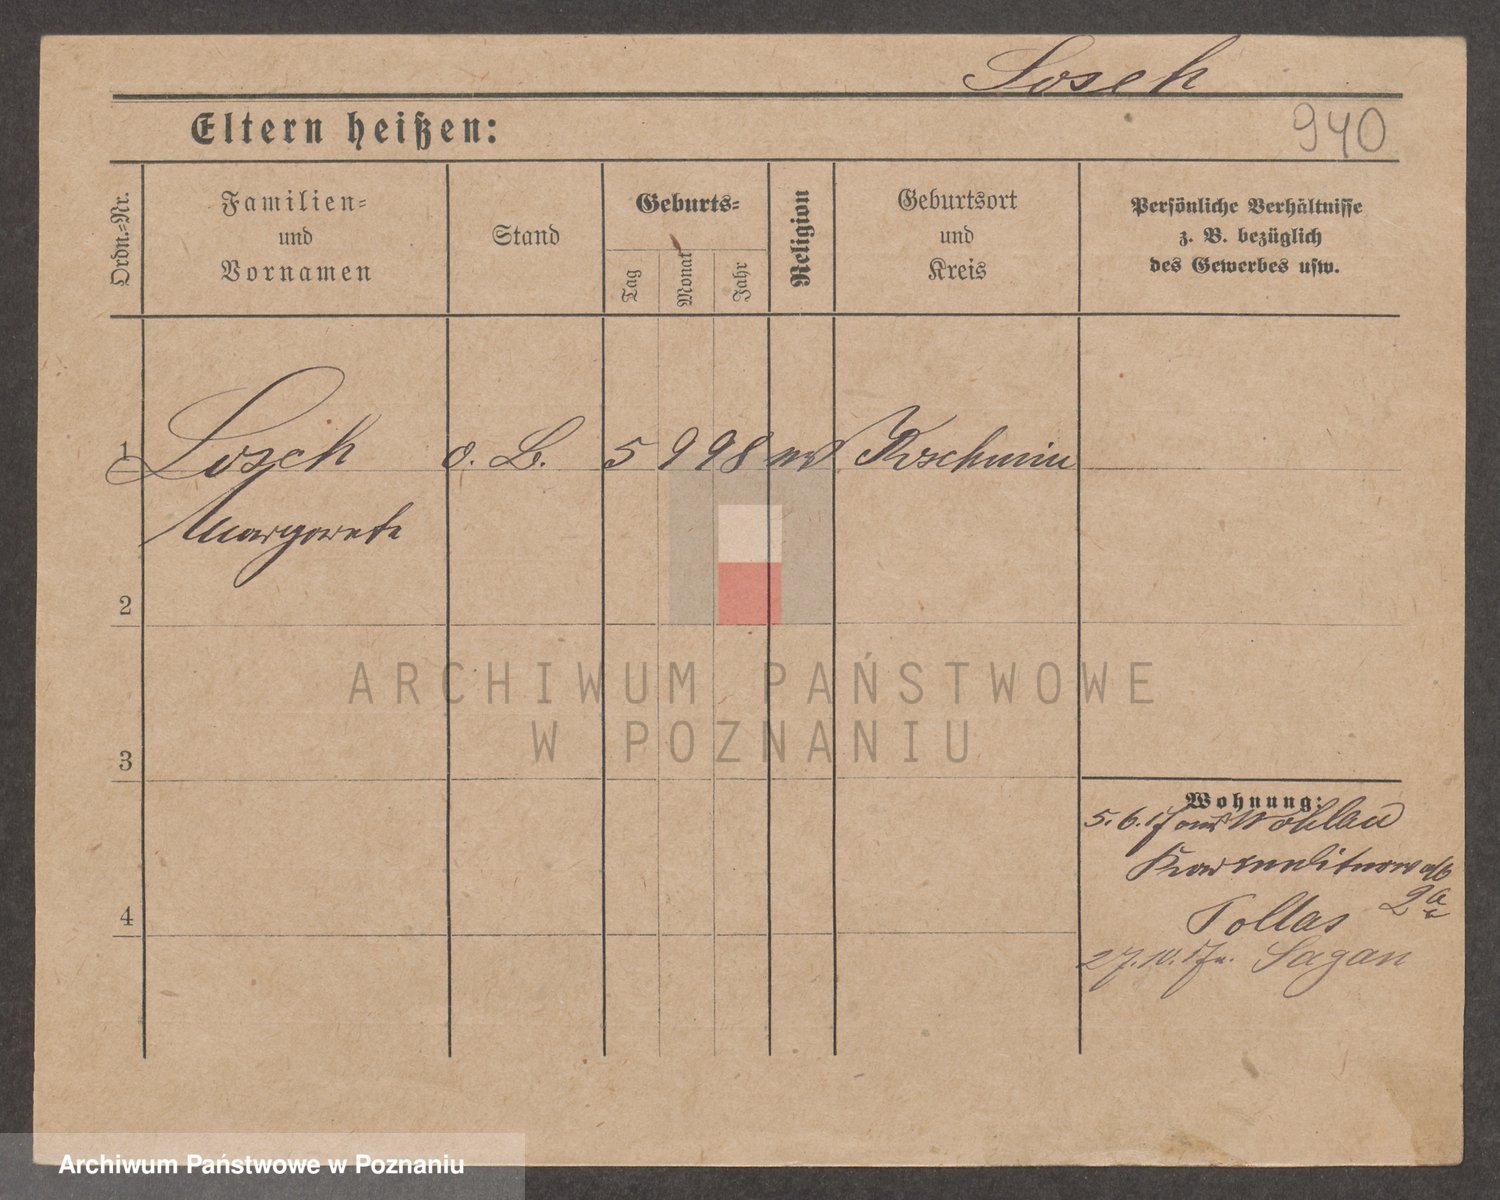 Losch
940
Eltern heißen:
Ordn.-Nr.
Familien-
und
Vornamen
Stand
Geburts-
Tag
Monat
Jahr
Religion
Geburtsort
und
Kreis
Persönliche Verhältnisse
z. B. bezüglich
des Gewerbes usw.
1 Losch o. B. 5 9 98 Koschmin
Margarete
2
ARCHIWUM PAŃSTWOWE
W POZNANIU
3
Wohnung:
5. 6. 17 aus Wohlau
2a
4
Tollas
27. 10. 17 n. Sagan
Archiwum Państwowe w Poznaniu